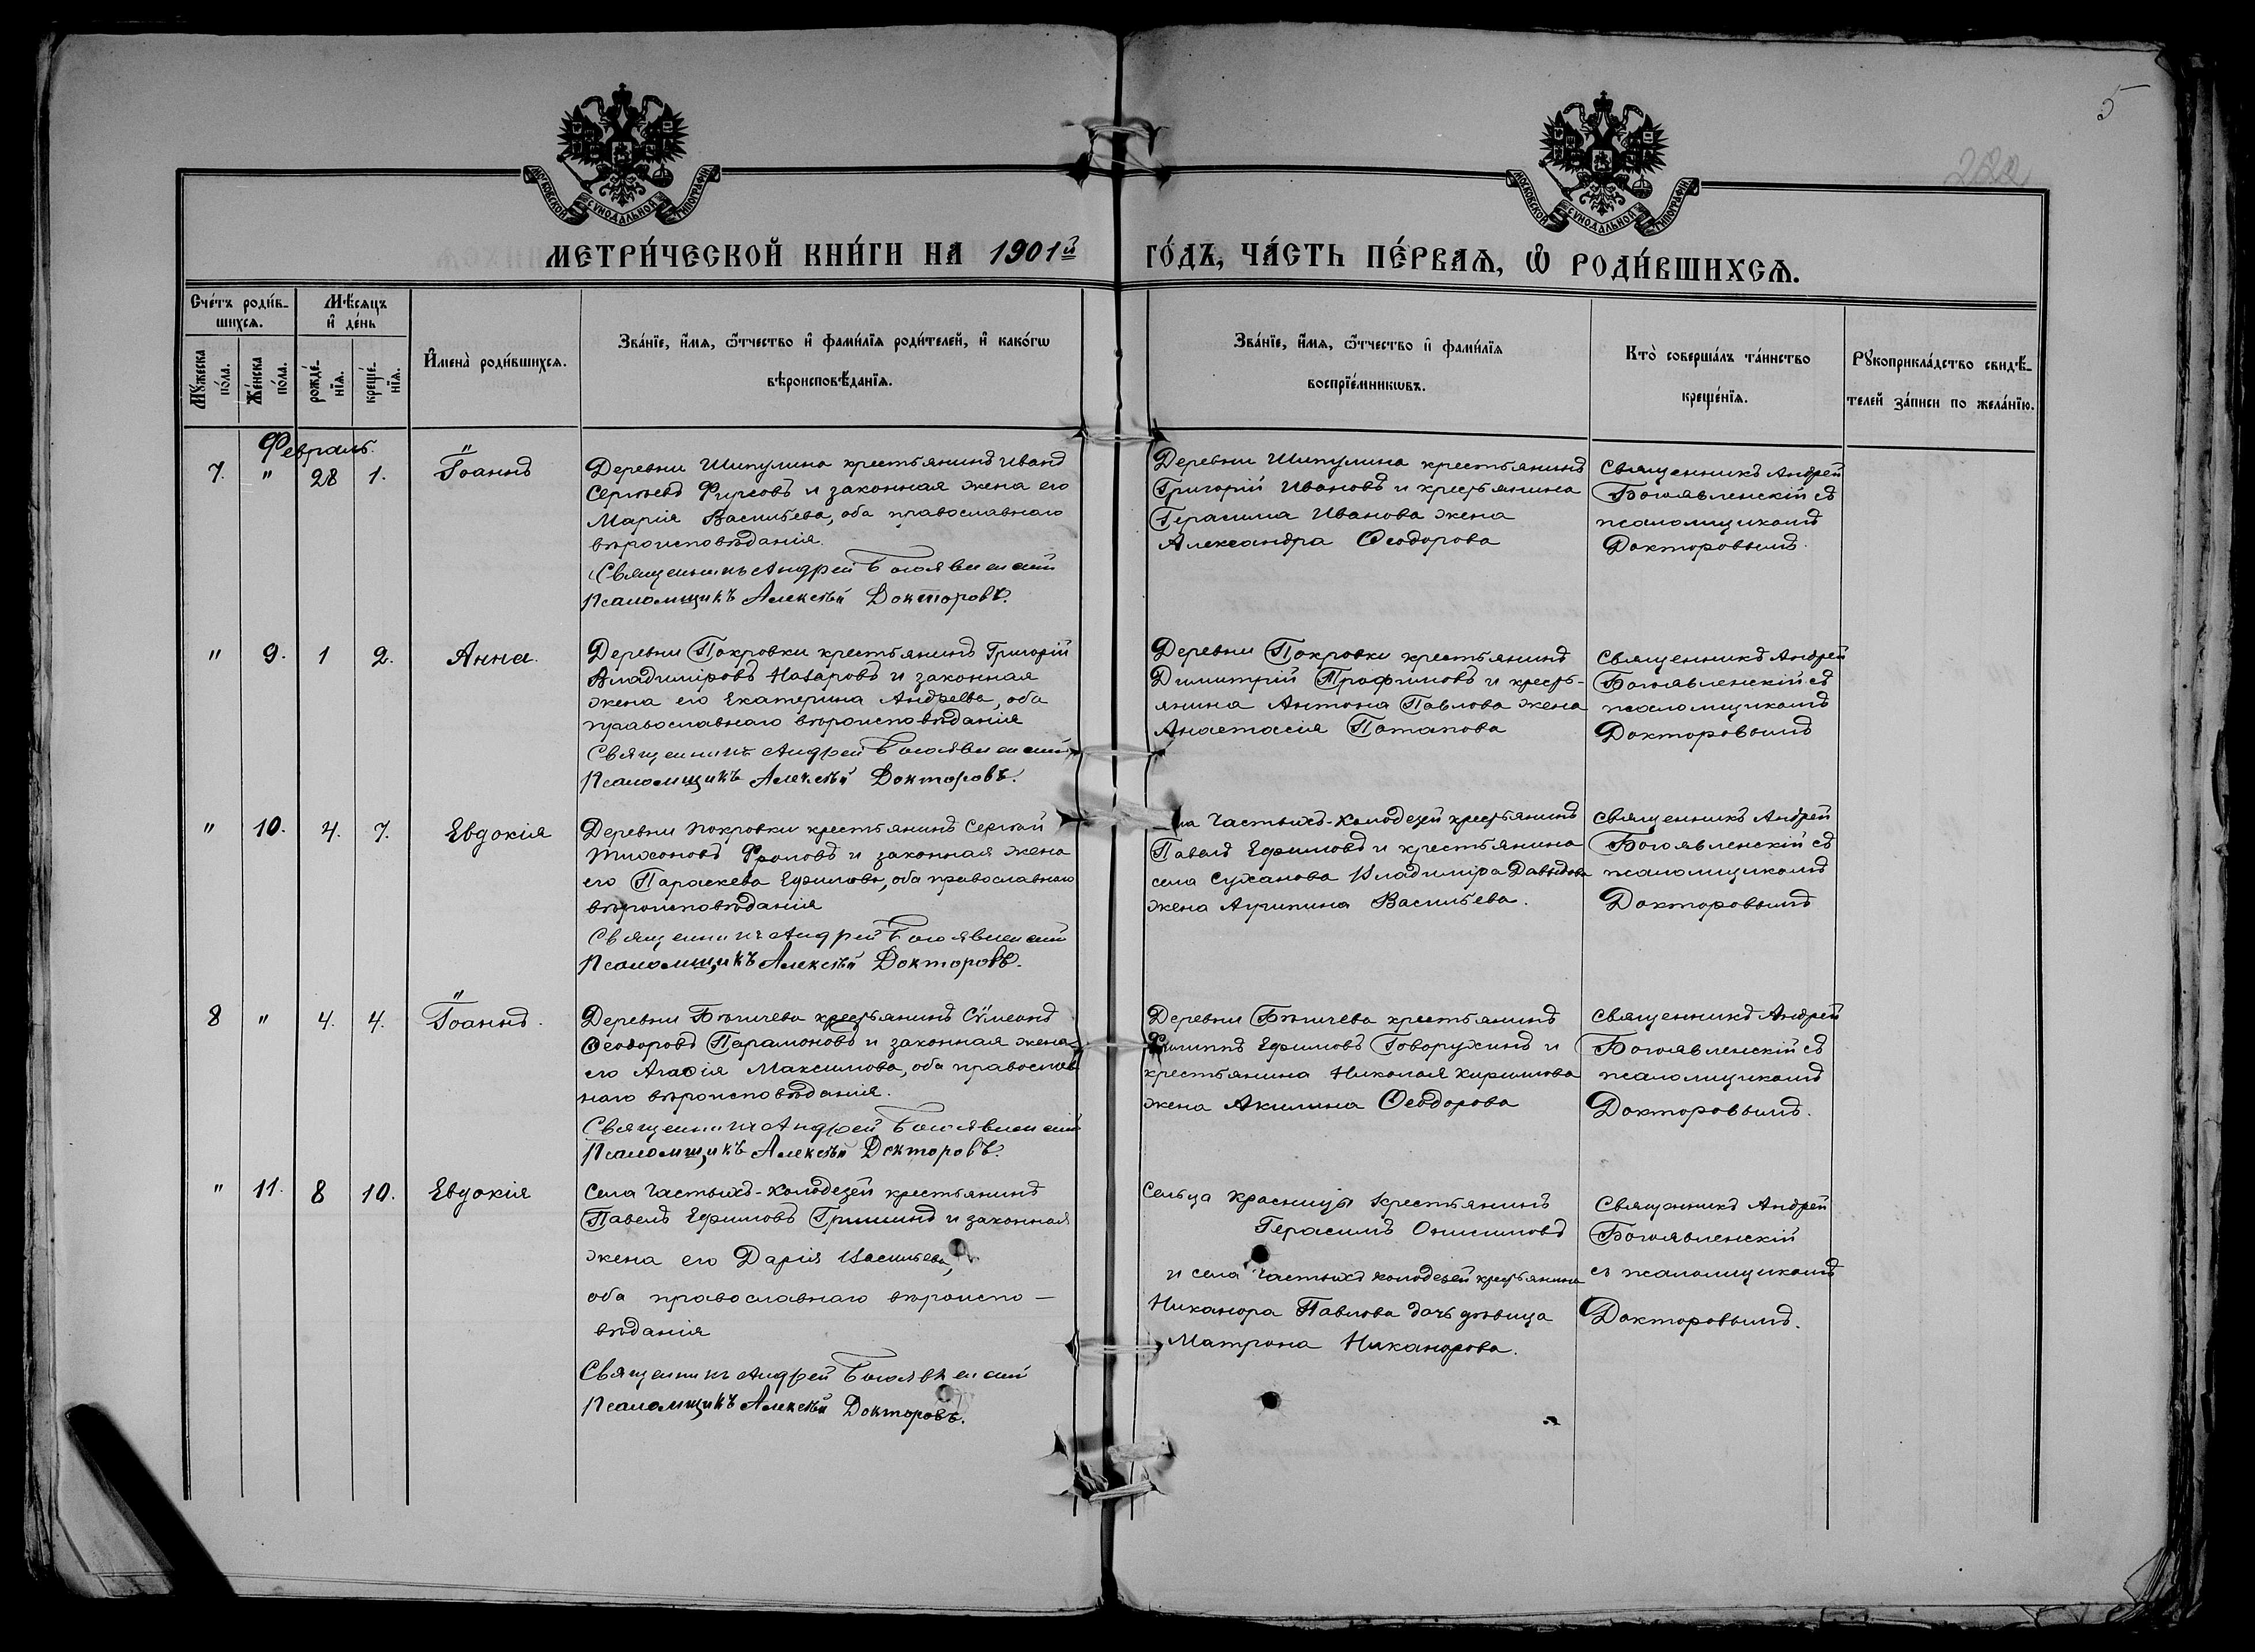 5
222
МОСКОВСКОЙ СУНОДАЛЬНОЙ ТИПОГРАФІИ
МОСКОВСКОЙ СУНОДАЛЬНОЙ ТИПОГРАФІИ
МЕТРИ́ЧЕСКОЙ КНИ́ГИ НА 1901й ГО́ДЪ, ЧА́СТЬ ПЕ́РВАѦ, Ѽ РОДИ́ВШИХСѦ.
Сче́тъ роди́в-
шихсѧ.
Мѣ́сяцъ
и҆ де́нь
Мꙋ́жеска
по́ла.
Же́нска
по́ла.
рожде́-
нїѧ.
креще́-
нїѧ.
И҆мена̀ роди́вшихсѧ.
Зва́нїе, и҆́мѧ, ѻ҆́тчество и҆ фами́лїѧ роди́телей, и҆ како́гѡ
вѣроисповѣ́данїѧ.
Зва́нїе, и҆́мѧ, ѻ҆́тчество и҆ фами́лїѧ
воспрїе́мникѡвъ.
Кто̀ соверша́лъ та́инство
креще́нїѧ.
Рꙋкоприкла́дство свидѣ́-
телей за́писи по жела́нїю.
Февраль.
7. " 28 1. Іоаннъ
Деревни Шипулина крестьянинъ Иванъ
Сергѣевъ и законная жена его
Марія Васильева, оба православнаго
вѣроисповѣданія.
Священникъ Андрей Богоявленскій
Псаломщикъ Алексѣй Докторовъ.
Деревни Шипулина крестьянинъ
Григорій Ивановъ и крестьянина
Герасима Иванова жена
Александра Ѳеодорова
Священникъ Андрей
Богоявленскій съ
псаломщикомъ
Докторовымъ.
" 9. 1 2. Анна.
Деревни Покровки крестьянинъ Григорій
Владиміровъ Назаровъ и законная
жена его Екатерина Андреева, оба
православнаго вѣроисповѣданія
Священникъ Андрей Богоявленскій
Псаломщикъ Алексѣй Докторовъ.
Деревни Покровки крестьянинъ
Димитрій Трофимовъ и кресть-
янина Антона Павлова жена
Анастасія Потапова
Священникъ Андрей
Богоявленскій съ
псаломщикомъ
Докторовымъ
" 10. 4. 7. Евдокія
Деревни Покровки крестьянинъ Сергѣй
Тихоновъ Фроловъ и законная жена
его Параскева Ефимова, оба православнаго
вѣроисповѣданія
Священникъ Андрей Богоявленскій
Псаломщикъ Алексѣй Докторовъ.
Частыхъ-Колодезей крестьянинъ
Павелъ Ефимовъ и крестьянина
села Суханова Владиміра Давыдова
жена Агрипина Васильева.
Священникъ Андрей
Богоявленскій съ
псаломщикомъ
Докторовымъ
8 " 4. 4. Іоаннъ.
Деревни Бѣгичева крестьянинъ Сѵмеонъ
Ѳеодоровъ Парамоновъ и законная жена
его Агаѳія Максимова, оба православ
наго вѣроисповѣданія.
Священникъ Андрей Богоявленскій
Псаломщикъ Алексѣй Докторовъ.
Деревни Бѣгичева крестьянинъ
Филиппъ Ефимовъ Говорухинъ и
крестьянина Николая Кирилова
жена Акилина Ѳеодорова
Священникъ Андрей
Богоявленскій съ
псаломщикомъ
Докторовымъ.
" 11. 8 10. Евдокія
Села Частыхъ-Колодезей крестьянинъ
Павелъ Ефимовъ Гришинъ и законная
жена его Дарія Васильева,
оба православнаго вѣроиспо-
вѣданія
Священникъ Андрей Богоявленскій
Псаломщикъ Алексѣй Докторовъ.
Сельца Красницы крестьянинъ
Герасимъ Онисимовъ
и села Частыхъ Колодезей крестьянина
Никанора Павлова дочь дѣвица
Матрона Никанорова.
Священникъ Андрей
Богоявленскій
съ псаломщикомъ
Докторовымъ.